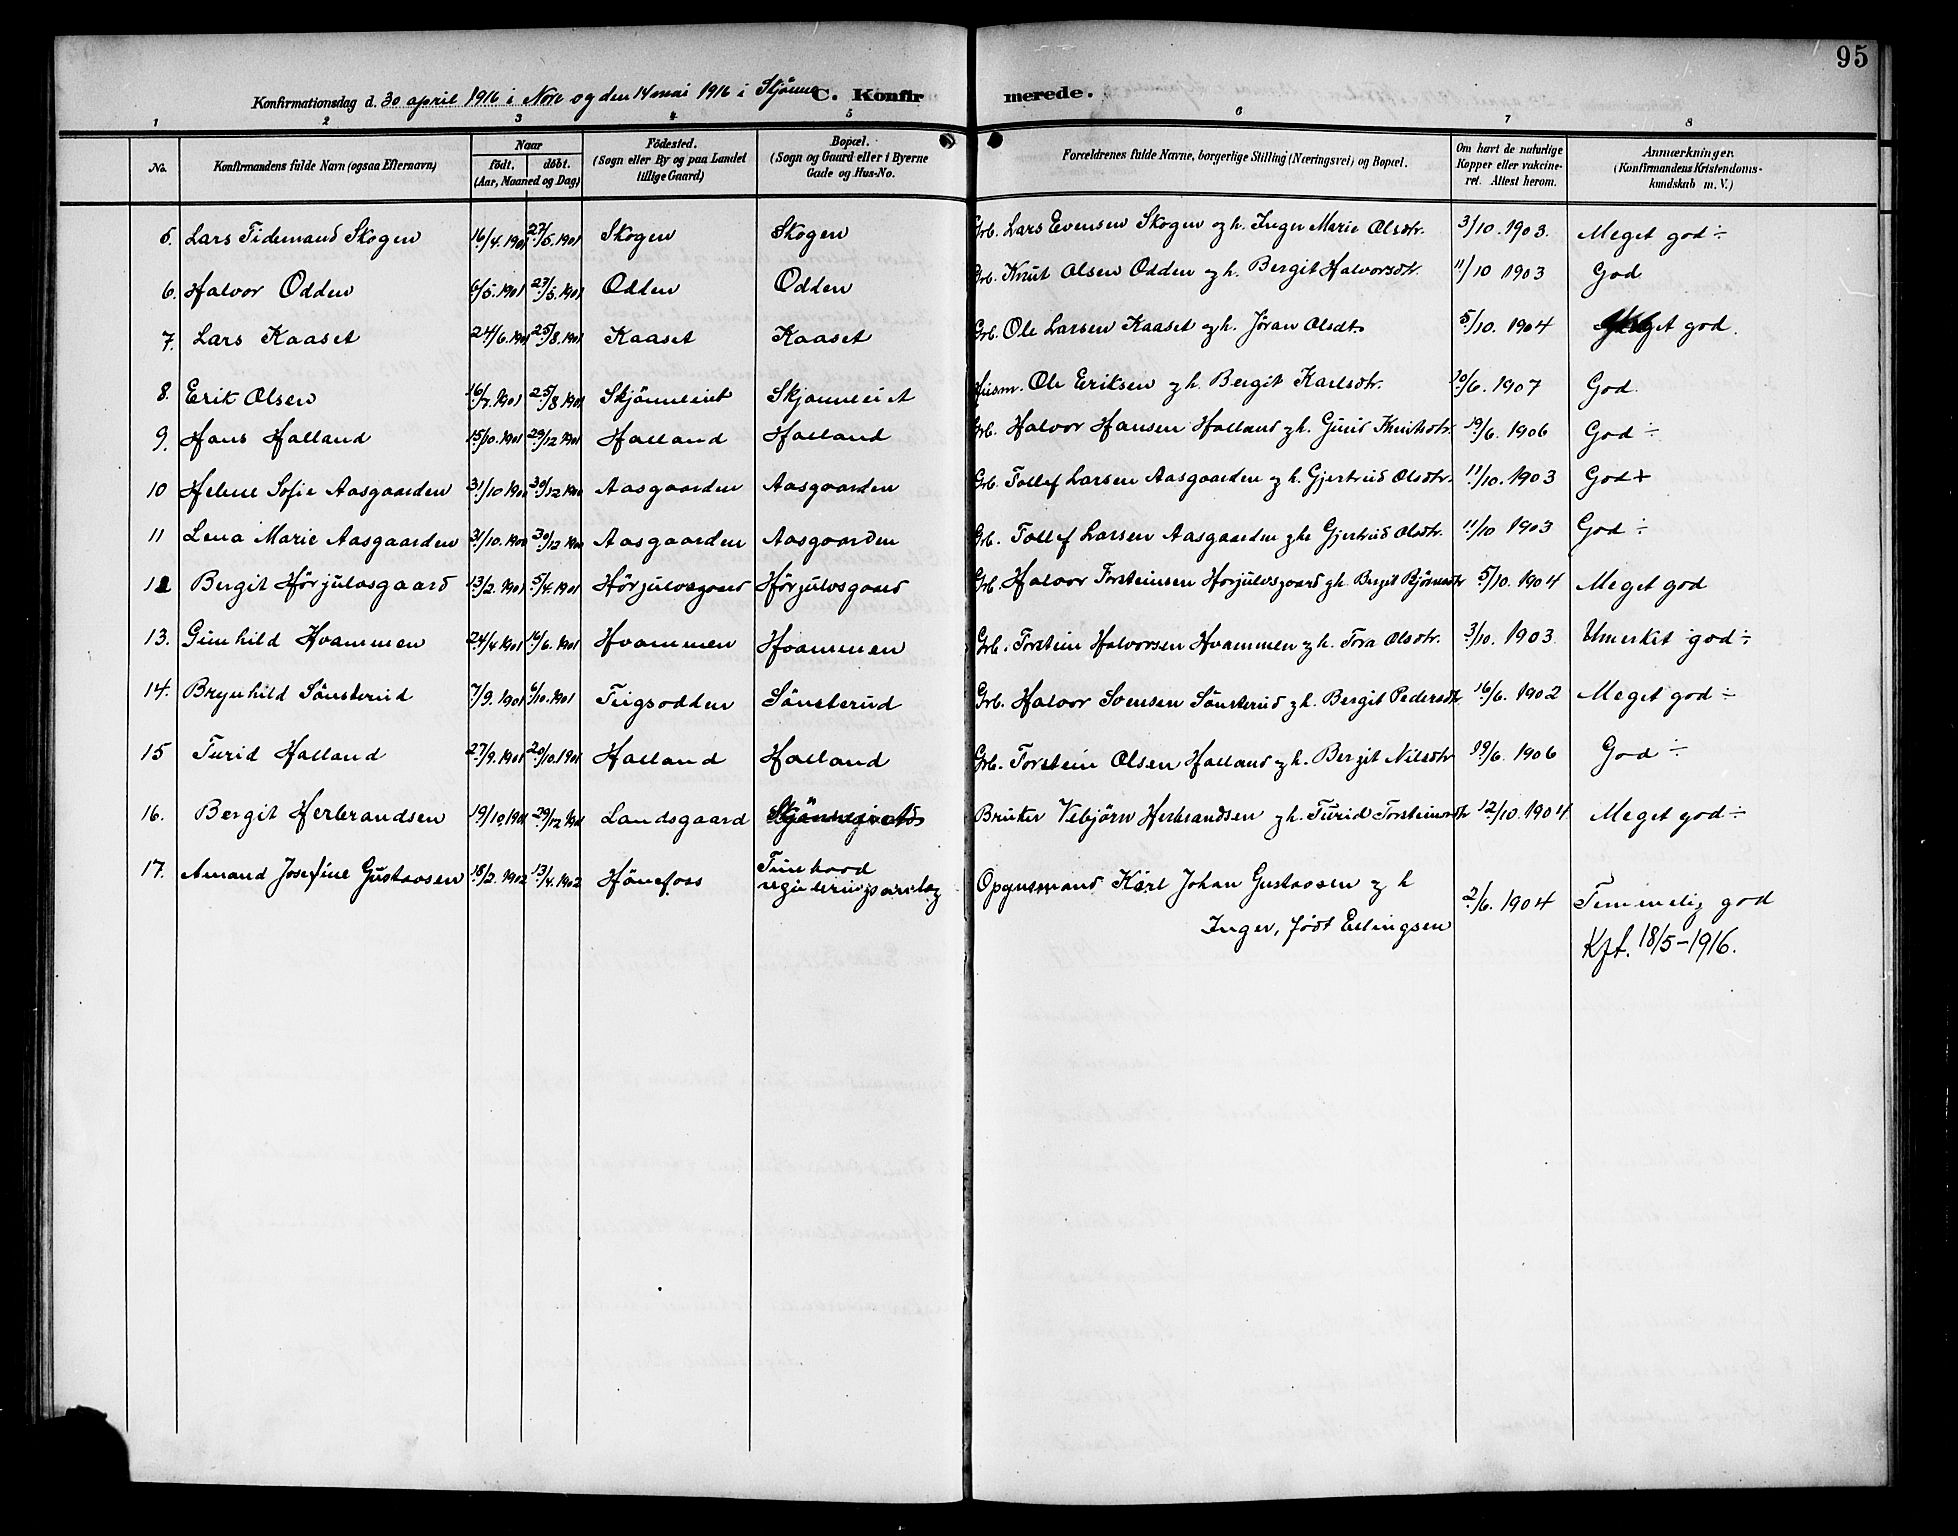 95
Konfirmationsdag d. 30 april 1916 i Nore og den 14 mai 1916 i Skjönne
C. Konfirmerede.
1 2 3 4 5 6 7 8
No. Konfirmandens fulde Navn (ogsaa Efternavn) Naar födt. döbt. (Aar, Maaned og Dag) Födested. (Sogn eller By og paa Landet tillige Gaard) Bopæl. (Sogn og Gaard eller i Byerne Gade og Hus-No. Forældrenes fulde Navne, borgerlige Stilling (Næringsvei) og Bopæl. Om havt de naturlige Kopper eller vakcineret. Attest herom. Anmærkninger. (Konfirmandens Kristendomskundskab m. V.)
5. Lars Tidemand Skogen 16/4.1901 27/5.1901 Skogen Skogen Grb. Lars Evensen Skogen og h. Inger Marie Olsdtr. 3/10.1903. Meget god ÷
6. Halvor Odden 6/5.1901 23/5.1901 Odden Odden Grb. Knut Olsen Odden og h. Bergit Halvorsdtr. 11/10 1903 God
7. Lars Kaaset 24/6.1901 25/8.1901 Kaaset Kaaset Grb. Ole Larsen Kaaset og h. Jöran Olsdtr 5/10.1904 Meget god.
8. Erik Olsen 16/7.1901 25/8 1901 Skjönneiet Skjönneiet Husm. Ole Eriksen og h. Bergit Karlsdtr. 20/6.1907 God.
9. Hans Halland 15/10.1901 29/12 1901 Halland Halland Grb. Halvor Hansen Halland og h. Guri Knutsdtr. 19/6.1906 God ÷
10 Helene Sofie Aasgaarden 31/10 1900 30/12 1900 Aasgaarden Aasgaarden Grb. Tollef Larsen Aasgaarden og h. Gjertrud Olsdtr. 11/10.1903 God +
11 Lena Marie Aasgaarden 31/10.1900 30/12 1900 Aasgaarden Aasgaarden Grb. Tollef Larsen Aasgaarden og h. Gjertrud Olsdtr. 11/10 1903 God ÷
12 Bergit Hörjulvsgaard 13/2.1901 5/4.1901 Hörjulvsgaard Hörjulvsgaard Grb. Halvor Torsteinsen Hörjulvsgaard og h. Bergit Björnsdtr 5/10.1904 Meget god
13. Gunhild Hvammen 24/4 1901 16/6.1901 Hvammen Hvammen Grb. Torstein Halvorsen Hvammen og h. Tora Olsdtr. 3/10.1903. Utmerket god ÷
14. Brynhild Sönsterud 7/9.1901 6/10.1901 Teigsodden Sönsterud Grb. Halvor Svensen Sönsterud og h. Bergit Pedersdtr 16/6.1902 Meget god ÷
15 Turid Halland 27/9.1901 20/10.1901 Halland Halland Grb. Torstein Olsen Halland og h. Bergit Nilsdtr 19/6.1906 God ÷
16. Bergit Herbrandsen 19/10.1901 29/12 1901 Landsgaard Bruker Vebjörn Herbrandsen og h. Turid Torsteinsdtr 12/10.1904 Meget god ÷
17. Amand Josefine Gustavsen 18/2.1902 13/4.1902 Hönefoss Tunhovd reguleringsanlæg Opsynsmand Karl Johan Gustavsen og h 2/6.1904 Temmelig god
Inger, född Erlingsen
Kft. 18/5-1916.